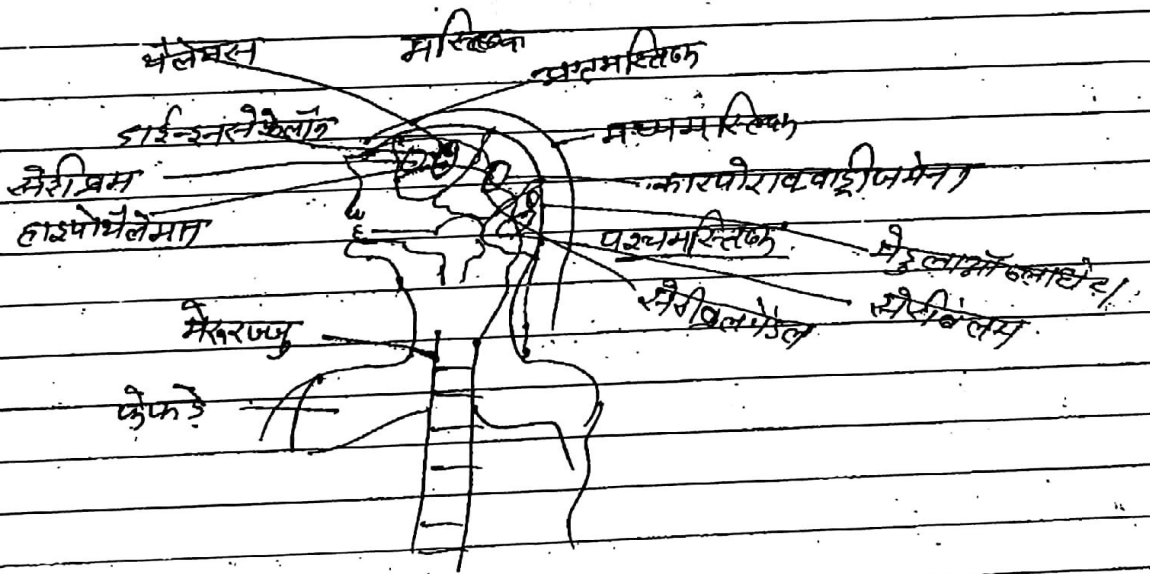 थैलेमस
मस्तिष्क
अग्रमस्तिष्क
डाईन्इनसेफेलॉन
मध्यमस्तिष्क
सेरीब्रम
कारपोराक्वाड्रीजमेना
हाइपोथैलेमस
पश्चमस्तिष्क
मेडुलाऑब्लाघेटा
सेरीब्रलपेडल
सेरीबेलम
मेरूरज्जु
फेफडे